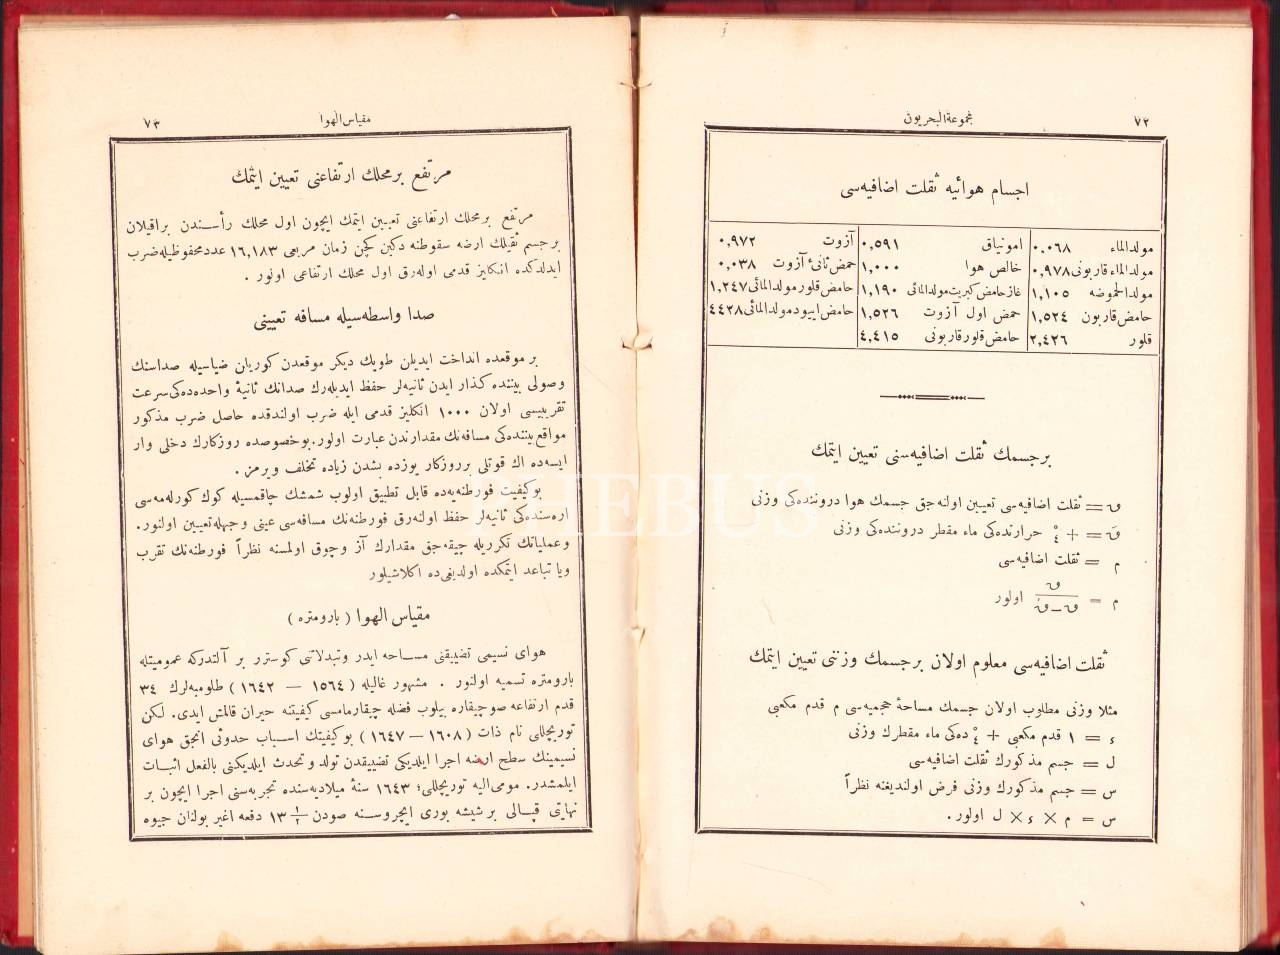 ٧٢
مجموعة البحريون
اجسام هوائيه ثقلت اضافيه‌سى
مولدالماء ٠,٠٦٨ امونياق ٠,٥٩١ آزوت ٠,٩٧٢
مولدالماء قاربونى ٠,٩٧٨ خالص هوا ١,٠٠٠ حمض ثانئ آزوت ٠,٠٣٨
مولدالحموضه ١,١٠٥ غاز حامض كبريت مولدالمائى ١,١٩٠ حامض قلور مولدالمائى ١,٢٤٧
حامض قاربون ١,٥٢٤ حمض اول آزوت ١,٥٢٦ حامض اييود مولدالمائى ٤٤٢٨
قلور ٢,٤٢٦ حامض قلور قاربونى ٤,٤١٥
بر جسمك ثقلت اضافيه‌سنى تعيين ايتمك
ق = ثقلت اضافيه‌سى تعيين اولنه‌جق جسمك هوا دروننده‌كى وزنى
قَ = + ٤ْ حرارتده‌كى ماء مقطر دروننده‌كى وزنى
م = ثقلت اضافيه‌سى
م = ق / ق – قَ اولور
ثقلت اضافيه‌سى معلوم اولان بر جسمك وزننى تعيين ايتمك
مثلا وزنى مطلوب اولان جسمك مساحۀ حجميه‌سى م قدم مكعبى
ء = ١ قدم مكعبى + ٤ْ ده‌كى ماء مقطرك وزنى
ل = جسم مذكورك ثقلت اضافيه‌سى
س = جسم مذكورك وزنى فرض اولنديغنه نظراً
س = م × ء × ل اولور.
مقياس الهوا
٧٣
مرتفع بر محلك ارتفاعنى تعيين ايتمك
مرتفع بر محلك ارتفاعنى تعيين ايتمك ايچون اول محلك رأسندن براقيلان
بر جسم ثقيلك ارضه سقوطنه دكين كچن زمان مربعى ١٦,١٨٣ عدد محفوظيله ضرب
ايدلدكده انكليز قدمى اوله‌رق اول محلك ارتفاعى اولور .
صدا واسطه‌سيله مسافه تعيينى
بر موقعده انداخت ايديلن طوپك ديكر موقعدن كوريان ضياسيله صداسنك
وصولى بيننده كذار ايدن ثانيه‌لر حفظ ايديله‌رك صدانك ثانيۀ واحده‌ده‌كى سرعت
تقريبيسى اولان ١٠٠٠ انكليز قدمى ايله ضرب اولندقده حاصل ضرب مذكور
مواقع بيننده‌كى مسافه‌نك مقدارندن عبارت اولور. بو خصوصده روزكارك دخلى وار
ايسه‌ده اك قوتلى بر روزكار يوزده بشدن زياده تخلف ويرمز .
بو كيفيت فورطنه‌يه‌ده قابل تطبيق اولوب شمشك چاقمسيله كوك كورله‌مه‌سى
اره‌سنده‌كى ثانيه‌لر حفظ اولنه‌رق فورطنه‌نك مسافه‌سى عينى وجهله تعيين اولنور.
و عملياتك تكرريله چيقه‌جق مقدارك آز و چوق اولمسنه نظراً فورطنه‌نك تقرب
ويا تباعد ايتمكده اولديغى‌ده اكلاشيلور
مقياس الهوا ( بارومتره )
هواى نسيمى تضييقنى مساحه ايدر و تبدلاتنى كوسترر بر آلتدركه عموميتله
بارومتره تسميه اولنور . مشهور غاليله ( ١٥٦٤ — ١٦٤٢ ) طلومبه‌لرك ٣٤
قدم ارتفاعه صو چيقاره بيلوب فضله چيقارمامسى كيفيتنه حيران قالمش ايدى. لكن
توريچللى نام ذات ( ١٦٠٨ — ١٦٤٧ ) بو كيفيتك اسباب حدوثى انجق هواى
نسيمينك سطح ارضه اجرا ايلديكى تضييقدن تولد و تحدث ايلديكنى بالفعل اثبات
ايلمشدر. مومى‌اليه توريچللى؛ ١٦٤٣ سنۀ ميلاديه‌سنده تجربه‌سنى اجرا ايچون بر
نهايتى قپالى بر شيشه بورى ايچروسنه صودن ١٣ ١/٢ دفعه اغير بولنان جيوه